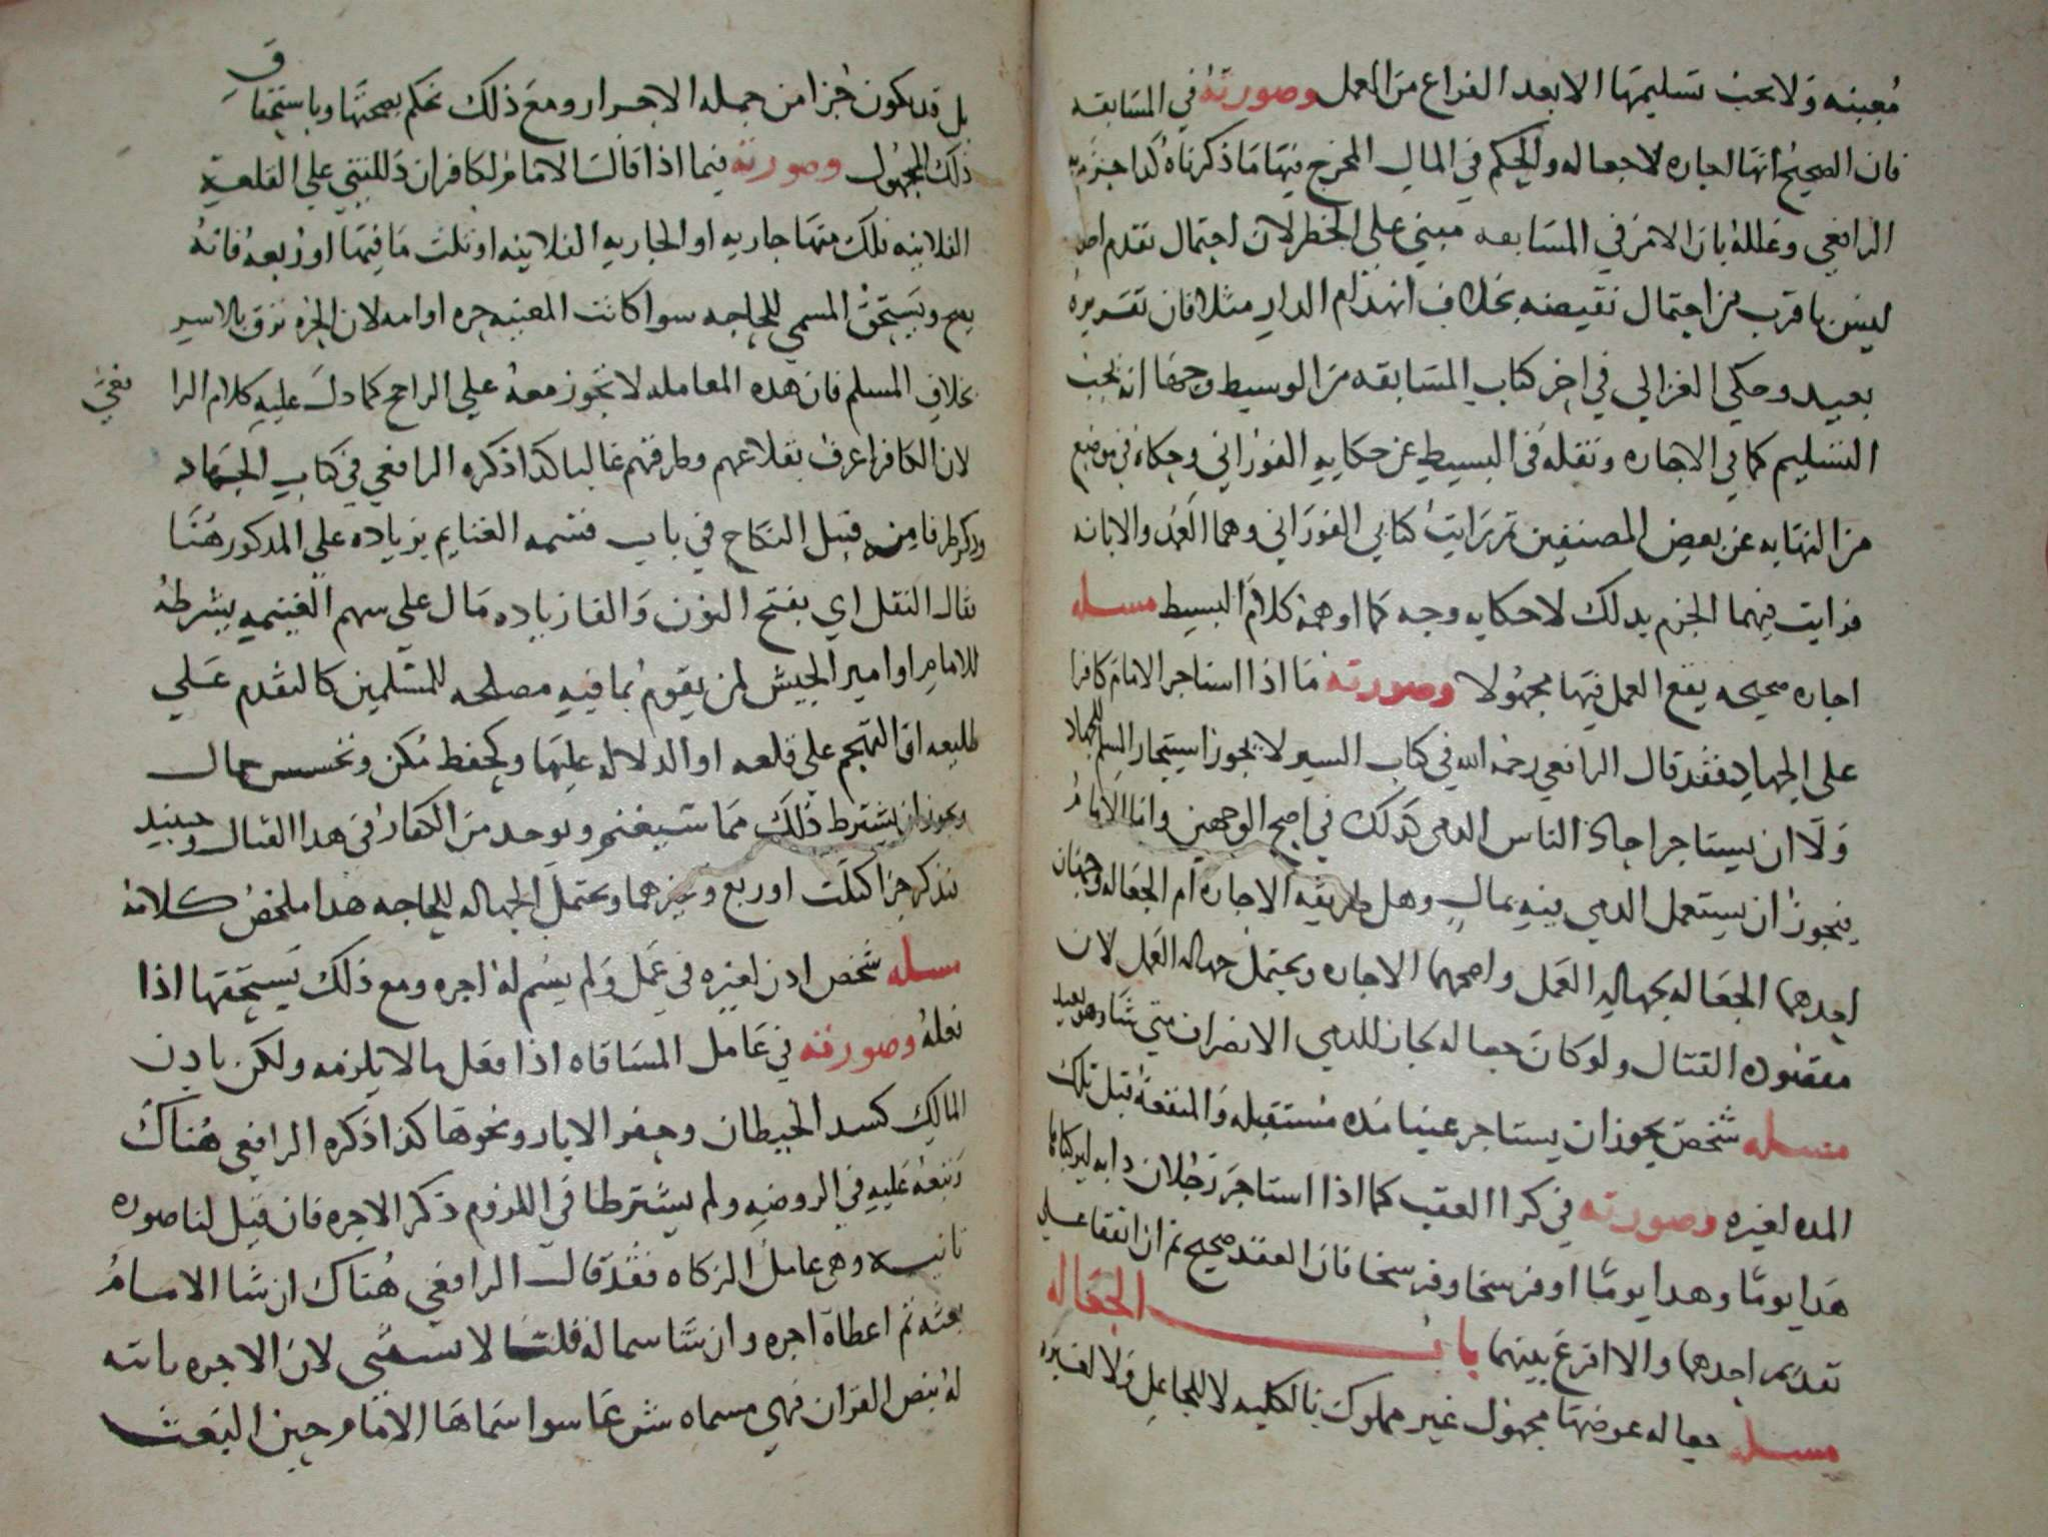 معينه ولا يجب تسليمها الا بعد الفراغ من العمل وصورته في المسابقه
فان الصحيح انها اجاره لا جعاله والحكم في المال المخرج فيها ما ذكرناه كذا جزم به
الرافعي وعلله بان الامر في المسابقه مبني على الخطر لان احتمال تقدم احد
ليس باقرب من احتمال نقيضه بخلاف انهدام الدار مثلا فان تقديره
بعيد وحكي الغزالي في اخر كتاب المسابقه من الوسيط وجها انه يجب
التسليم كما في الاجاره ونقله في البسيط عن حكايه الفوراني وحكاه في موضع
من النهايه عن بعض المصنفين ثم رايت كتابي الفوراني وهما العمد والابانه
فرايت فيهما الجزم بذلك لا حكايه وجه كما اوهمه كلام البسيط مسله
اجاره صحيحه يقع العمل فيها مجهولا وصورته ما اذا استاجر الامام كافرا
على الجهاد فقد قال الرافعي رحمه الله في كتاب السير لا يجوز استيجار المسلم للجهاد
ولا ان يستاجر احاد الناس الذمي كذلك في اصح الوجهين واما الامام
فيجوز ان يستعمل الذمي فيه بمال وهل طريقه الاجاره ام الجعاله وجهان
احدهما الجعاله لجهاله العمل واصحهما الاجاره ويحتمل جهاله العمل لان
مقصوده القتال ولو كان جعاله لجاز للذمي الانصراف متي شا وهو بعيد
مسله شخص يجوز ان يستاجر عينا مده مستقبله والمنفعه قبل تلك
المده لغيره وصورته في كرا العقب كما اذا استاجر رجلان دابه ليركباها
هذا يوما وهذا يوما او فرسخا وفرسخا فان العقد صحيح ثم ان اتفقا على
تقديم احدهما والا اقرع بينهما باب الجعاله
مسله جعاله عوضها مجهول غير مملوك بالكليه لا للجاعل ولا لغيره
بل قد يكون جزا من جمله الاحرار ومع ذلك نحكم بصحتها وباستحقاق
ذلك المجهول وصورته فيما اذا قال الامام لكافر ان دللتني على القلعه
الفلانيه فلك منها جاريه او الجاريه الفلانيه او ثلث ما فيها او ربعه فانه
يصح ويستحق المسمي للحاجه سوا كانت المعينه حره او امه لان الحره ترق بالاسر
بخلاف المسلم فان هذه المعامله لا تجوز معه على الراجح كما دل عليه كلام الرافعي
لان الكافر اعرف بقلاعهم وطرقهم غالبا كذا ذكره الرافعي في كتاب الجهاد
وذكر طرفا منه قبيل النكاح في باب قسمه الغنايم بزياده على المذكور هنا
فقال النفل اي بفتح النون والفا زياده مال على سهم الغنيمه يشرطه
الامام او امير الجيش لمن يقوم بما فيه مصلحه للمسلمين كالتقدم على
طليعه او التهجم على قلعه او الدلاله عليها وكحفظ مكمن وتجسس حال
ويجوز ان يشترط ذلك مما سيغنم ويوخذ من الكفار في هذا القتال وحينيذ
فتذكر جزا كثلث او ربع وغيرهما ويحتمل الجهاله للحاجه هذا ملخص كلامه
مسله شخص اذن لغيره في عمل ولم يسم له اجره ومع ذلك يستحقها اذا
فعله وصورته في عامل المساقاه اذا فعل ما لا يلزمه ولكن باذن
المالك كسد الحيطان وحفر الابار ونحوها كذا ذكره الرافعي هناك
وتبعه عليه في الروضه ولم يشترطا في اللزوم ذكر الاجره فان قيل لنا صوره
ثانيه وهي عامل الزكاه فقد قال الرافعي هناك ان شا الامام
بعثه ثم اعطاه اجره وان شا سما له قلنا لا يستثني لان الاجره ثابته
له بنص القران فهي مسماه شرعا سوا سماها الامام حين البعث